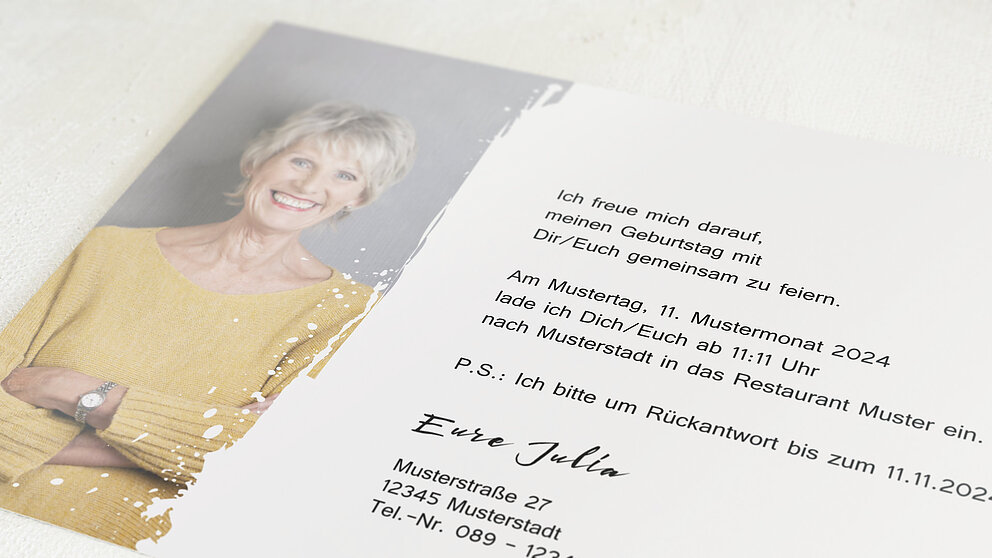 Ich freue mich darauf,
meinen Geburtstag mit
Dir/Euch gemeinsam zu feiern.
Am Mustertag, 11. Mustermonat 2024
lade ich Dich/Euch ab 11:11 Uhr
nach Musterstadt in das Restaurant Muster ein.
P.S.: Ich bitte um Rückantwort bis zum 11.11.2024
Eure Julia
Musterstraße 27
12345 Musterstadt
Tel.-Nr. 089 - 1234